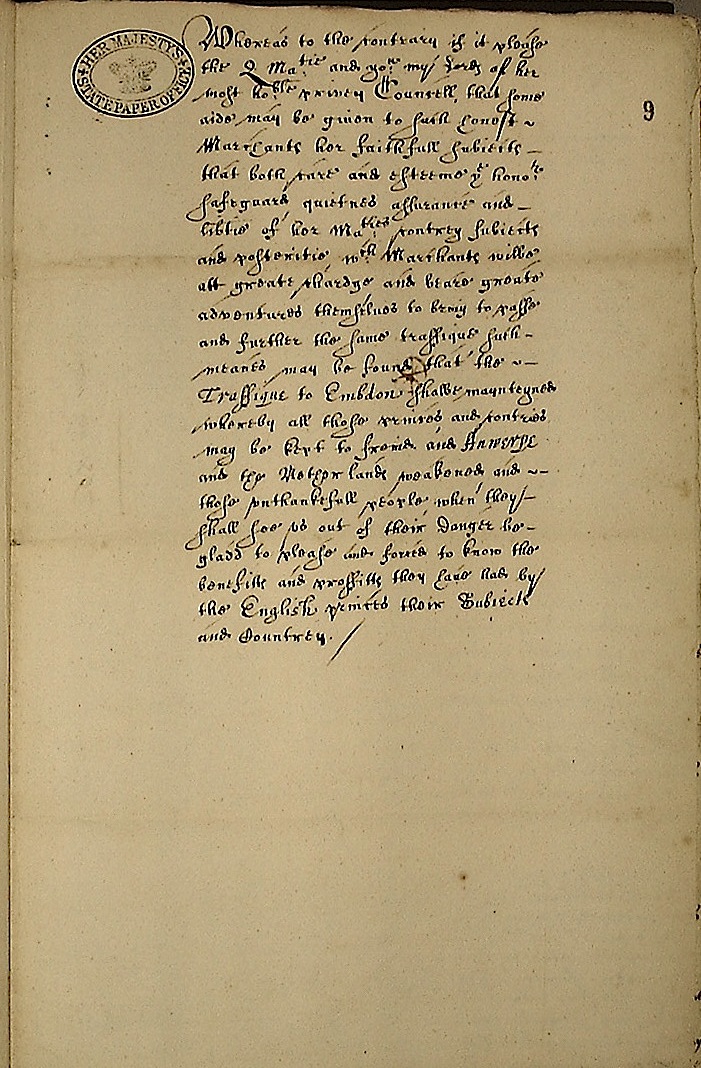 HER MAJESTY'S
STATE PAPER OFFICE
9
Whereas to the contrary if it please
the Q Ma:tie and yo:r my Lords of her
most ho:ble privey Councell, that some
aide may be given to such honest ~
Marchants her faithfull subiects –
that both care and esteeme ye hono:r
safeguard quietnes assurance and –
libtie of her Ma:ties contrey subiects
and posteritie wch Marchants wilbe
att greate chardge and beare greate
adventures themselves to bring to passe
and further the same traffique such –
meanes may be found that the ~ –
Traffique to Embdon shalbe maynteyned
whereby all those princes and contries
may be kept to freind and Anwerpe
and the Nether lands weakened and ~ –
those unthankefull people when they
shall see us out of their danger be –
gladd to please and forced to know the
benefitts and proffitts they have had by
the English princes their Subiects
and Countrey. /